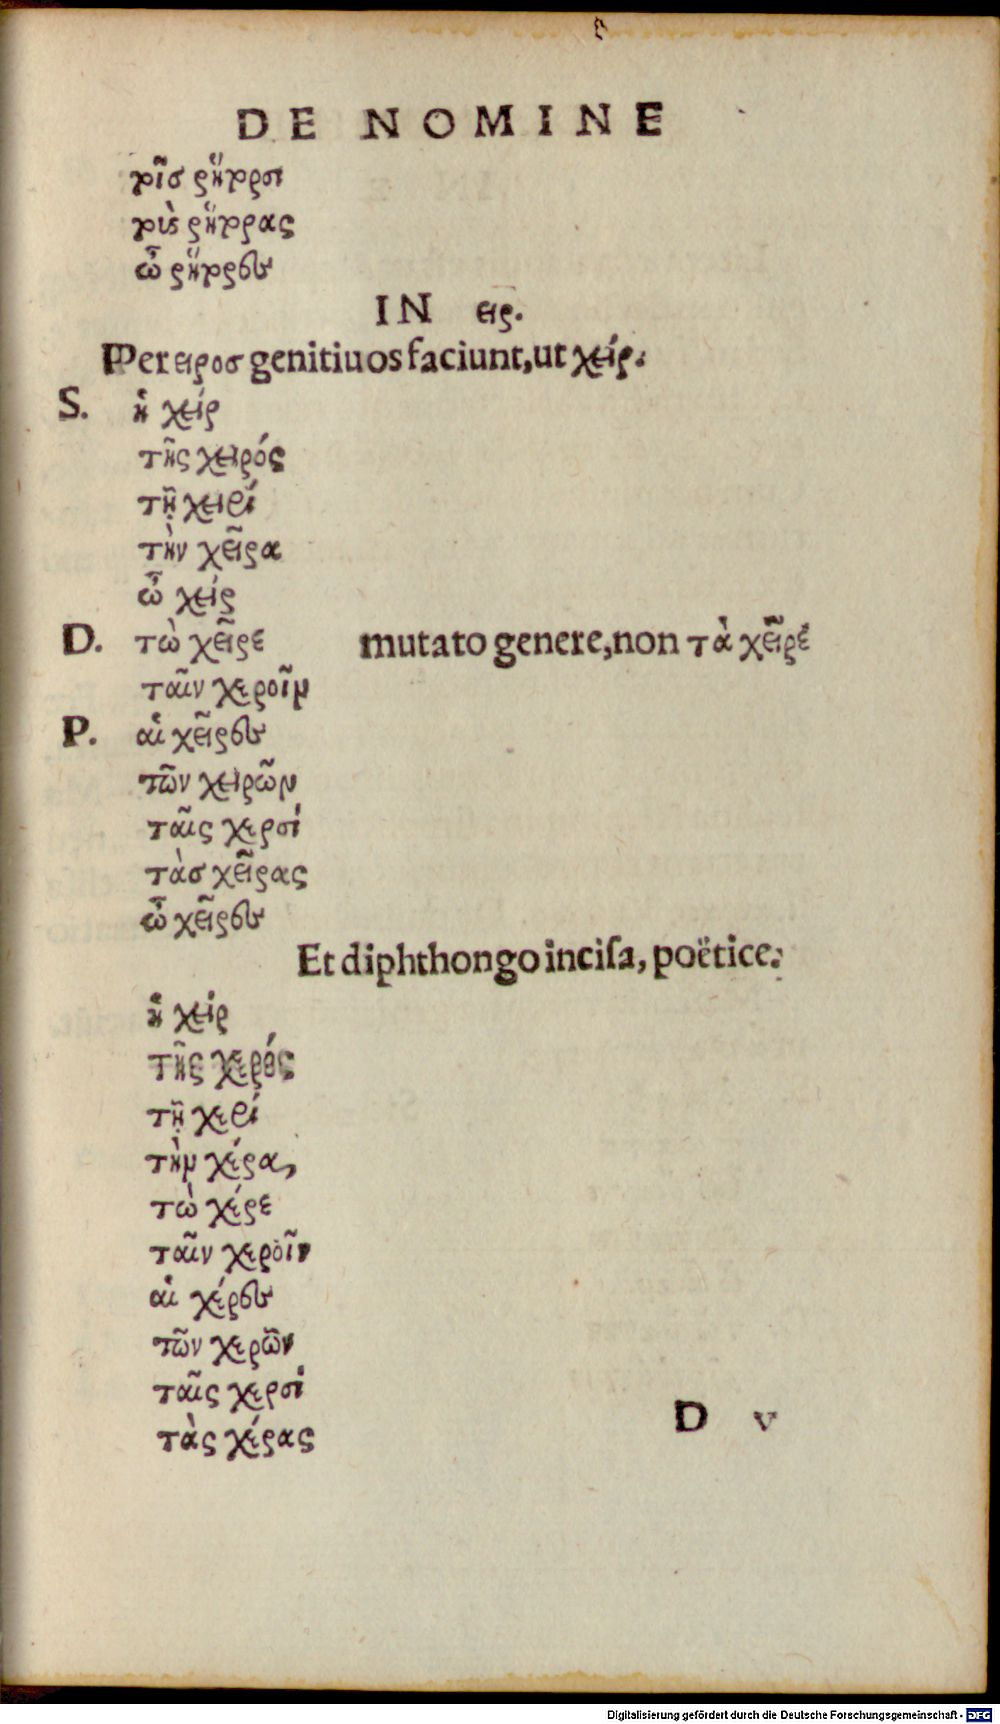 DE NOMINE
τοῖσ ῥήτορσι
τοὺς ῥήτορας
ὦ ῥήτορες
IN ειρ.
Per ειροσ genitiuos faciunt, ut χείρ.
S. ἡ χείρ
τῆς χειρός
τῇ χειρί
τὴν χεῖρα
ὦ χείρ
D. τὼ χεῖρε mutato genere, non τὰ χεῖρέ
ταῖν χεροῖν
P. αἱ χεῖρες
τῶν χειρῶν
ταῖς χερσί
τὰσ χεῖρας
ὦ χεῖρες
Et diphthongo inciſa, poëtice.
ἡ χείρ
τῆς χερός
τῇ χερί
τὴν χέρα,
τὼ χέρε
ταῖν χεροῖν
αἱ χέρες
τῶν χερῶν
ταῖς χερσί
τὰς χέρας
D v
Digitalisierung gefördert durch die Deutsche Forschungsgemeinschaft - DFG